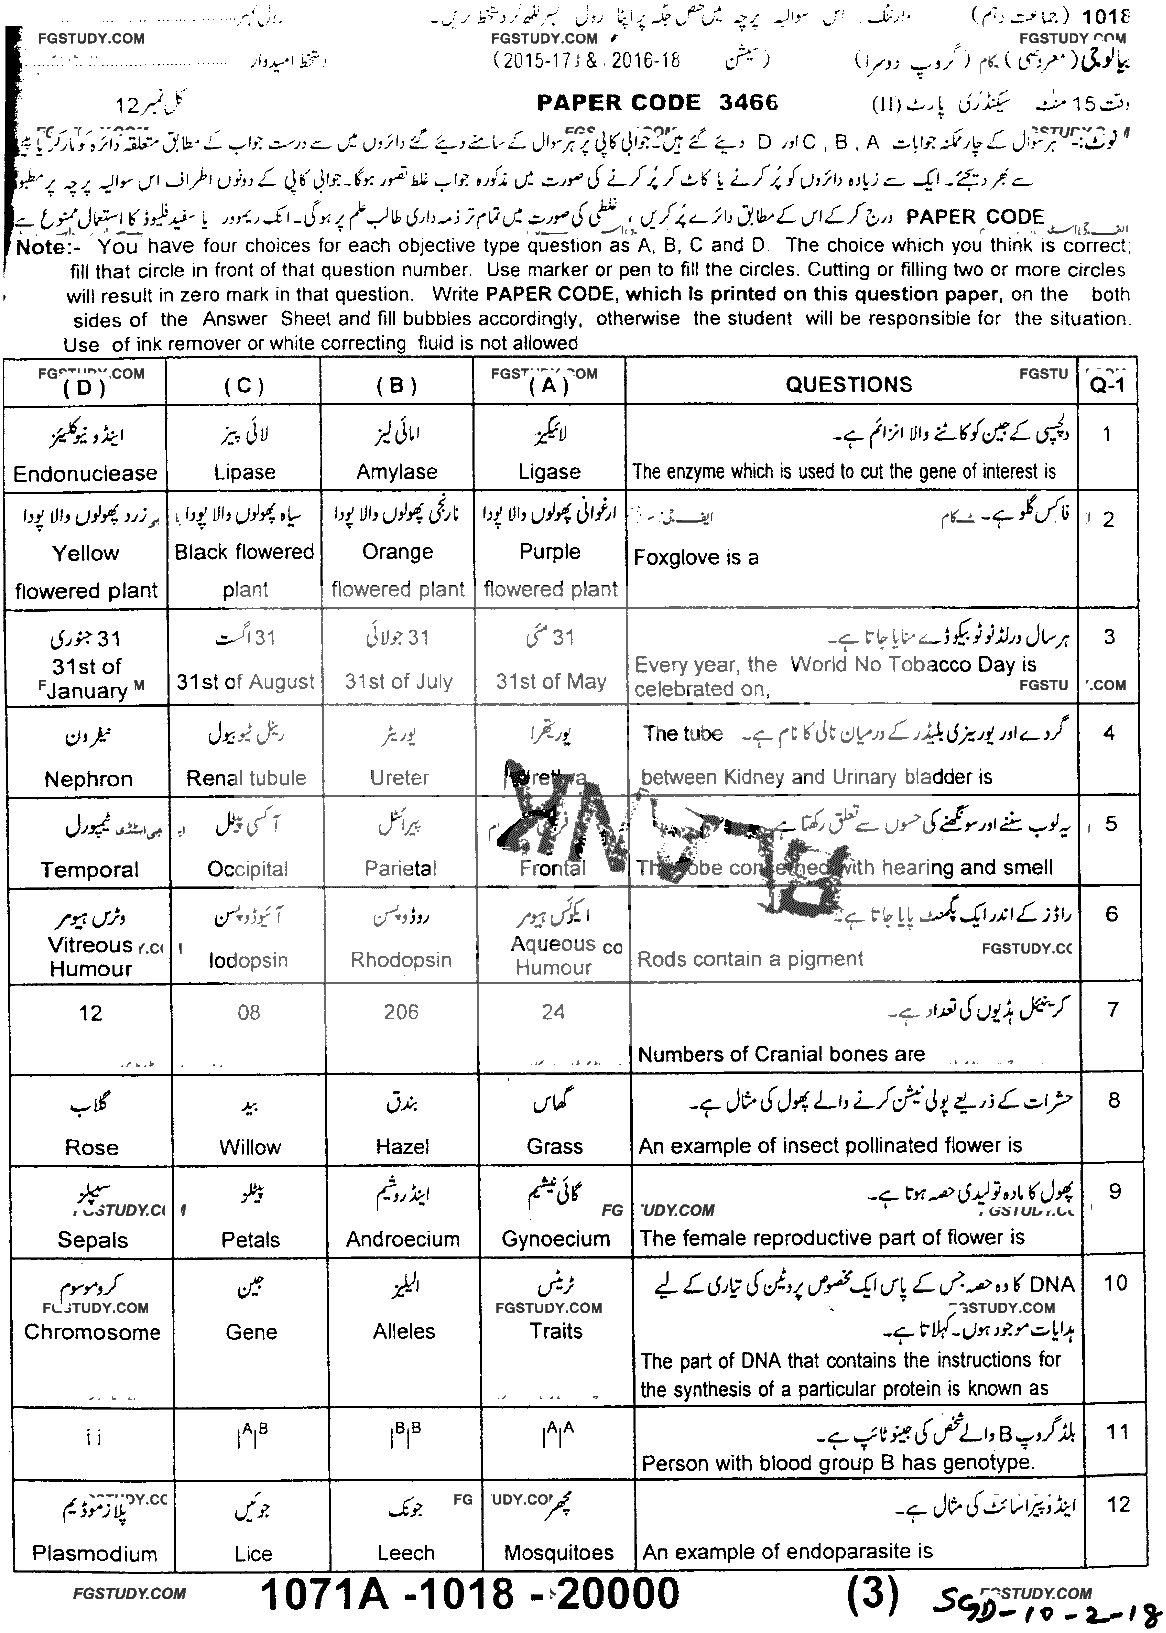 1018 (جماعت دہم) وارننگ۔ اس سوالیہ پرچہ میں مختص جگہ پر اپنا رول نمبر لکھ کر دستخط کریں۔ رول نمبر
FGSTUDY.COM FGSTUDY.COM FGSTUDY.COM
بیالوجی (معروضی) (گروپ دوسرا) سیشن (2015-17 & 2016-18) دستخط امیدوار
وقت 15 منٹ سیکنڈری پارٹ (II) PAPER CODE 3466 کل نمبر 12
نوٹ:- ہر سوال کے چار ممکنہ جوابات A ، B ، C اور D دیئے گئے ہیں۔ جوابی کاپی پر ہر سوال کے سامنے دیئے گئے دائروں میں سے درست جواب کے مطابق متعلقہ دائرہ کو مارکر یا پین
سے بھر دیجئے۔ ایک سے زیادہ دائروں کو پُر کرنے یا کاٹ کر پُر کرنے کی صورت میں مذکورہ جواب غلط تصور ہوگا۔ جوابی کاپی کے دونوں اطراف اس سوالیہ پرچہ پر مطبوعہ
PAPER CODE درج کر کے اس کے مطابق دائرے پُر کریں، غلطی کی صورت میں تمام تر ذمہ داری طالب علم پر ہوگی۔ انک ریموور یا سفید فلیوڈ کا استعمال ممنوع ہے
Note:- You have four choices for each objective type question as A, B, C and D. The choice which you think is correct;
fill that circle in front of that question number. Use marker or pen to fill the circles. Cutting or filling two or more circles
will result in zero mark in that question. Write PAPER CODE, which is printed on this question paper, on the both
sides of the Answer Sheet and fill bubbles accordingly, otherwise the student will be responsible for the situation.
Use of ink remover or white correcting fluid is not allowed
(D) (C) (B) (A) QUESTIONS Q-1
اینڈونیوکلیئیز لائی پیز امائی لیز لائیگیز دلچسپی کے جین کو کاٹنے والا انزائم ہے۔ 1
Endonuclease Lipase Amylase Ligase The enzyme which is used to cut the gene of interest is
زرد پھولوں والا پودا سیاہ پھولوں والا پودا نارنجی پھولوں والا پودا ارغوانی پھولوں والا پودا فاکس گلو ہے۔ 2
Yellow Black flowered Orange Purple Foxglove is a
flowered plant plant flowered plant flowered plant
31 جنوری 31 اگست 31 جولائی 31 مئی ہر سال ورلڈ نو ٹوبیکو ڈے منایا جاتا ہے۔ 3
31st of January 31st of August 31st of July 31st of May Every year, the World No Tobacco Day is
celebrated on, FGSTU .COM
نیفرون رینل ٹیوبیول یوریٹر یوریتھرا گردے اور یورینری بلیڈر کے درمیان نالی کا نام ہے۔ The tube 4
Nephron Renal tubule Ureter Urethra between Kidney and Urinary bladder is
ٹیمپورل آکسی پیٹل پیرائٹل یہ لوب سننے اور سونگھنے کی حسوں سے تعلق رکھتا ہے 5
Temporal Occipital Parietal Frontal The lobe concerned with hearing and smell
وٹرس ہیومر آئیوڈوپسن روڈوپسن ایکوئس ہیومر راڈز کے اندر ایک پگمنٹ پایا جاتا ہے۔ 6
Vitreous Humour Iodopsin Rhodopsin Aqueous Humour Rods contain a pigment
12 08 206 24 کرینیئل ہڈیوں کی تعداد ہے۔ 7
Numbers of Cranial bones are
گلاب بید ہندق گھاس حشرات کے ذریعے پولی نیشن کرنے والے پھول کی مثال ہے۔ 8
Rose Willow Hazel Grass An example of insect pollinated flower is
سیپلز پیٹلز اینڈروشیم گائنیشیم پھول کا مادہ تولیدی حصہ ہوتا ہے۔ 9
Sepals Petals Androecium Gynoecium The female reproductive part of flower is
کروموسوم جین الیلیز ٹریٹس DNA کا وہ حصہ جس کے پاس ایک مخصوص پروٹین کی تیاری کے لیے 10
ہدایات موجود ہوں۔ کہلاتا ہے۔
Chromosome Gene Alleles Traits The part of DNA that contains the instructions for
the synthesis of a particular protein is known as
ii IᴬIᴮ IᴮIᴮ IᴬIᴬ بلڈ گروپ B والے شخص کی جینوٹائپ ہے۔ 11
Person with blood group B has genotype.
پلازموڈیم جوئیں جونک مچھر اینڈوپیراسائٹ کی مثال ہے۔ 12
Plasmodium Lice Leech Mosquitoes An example of endoparasite is
FGSTUDY.COM 1071A -1018 - 20000 (3) SGD-10-2-18